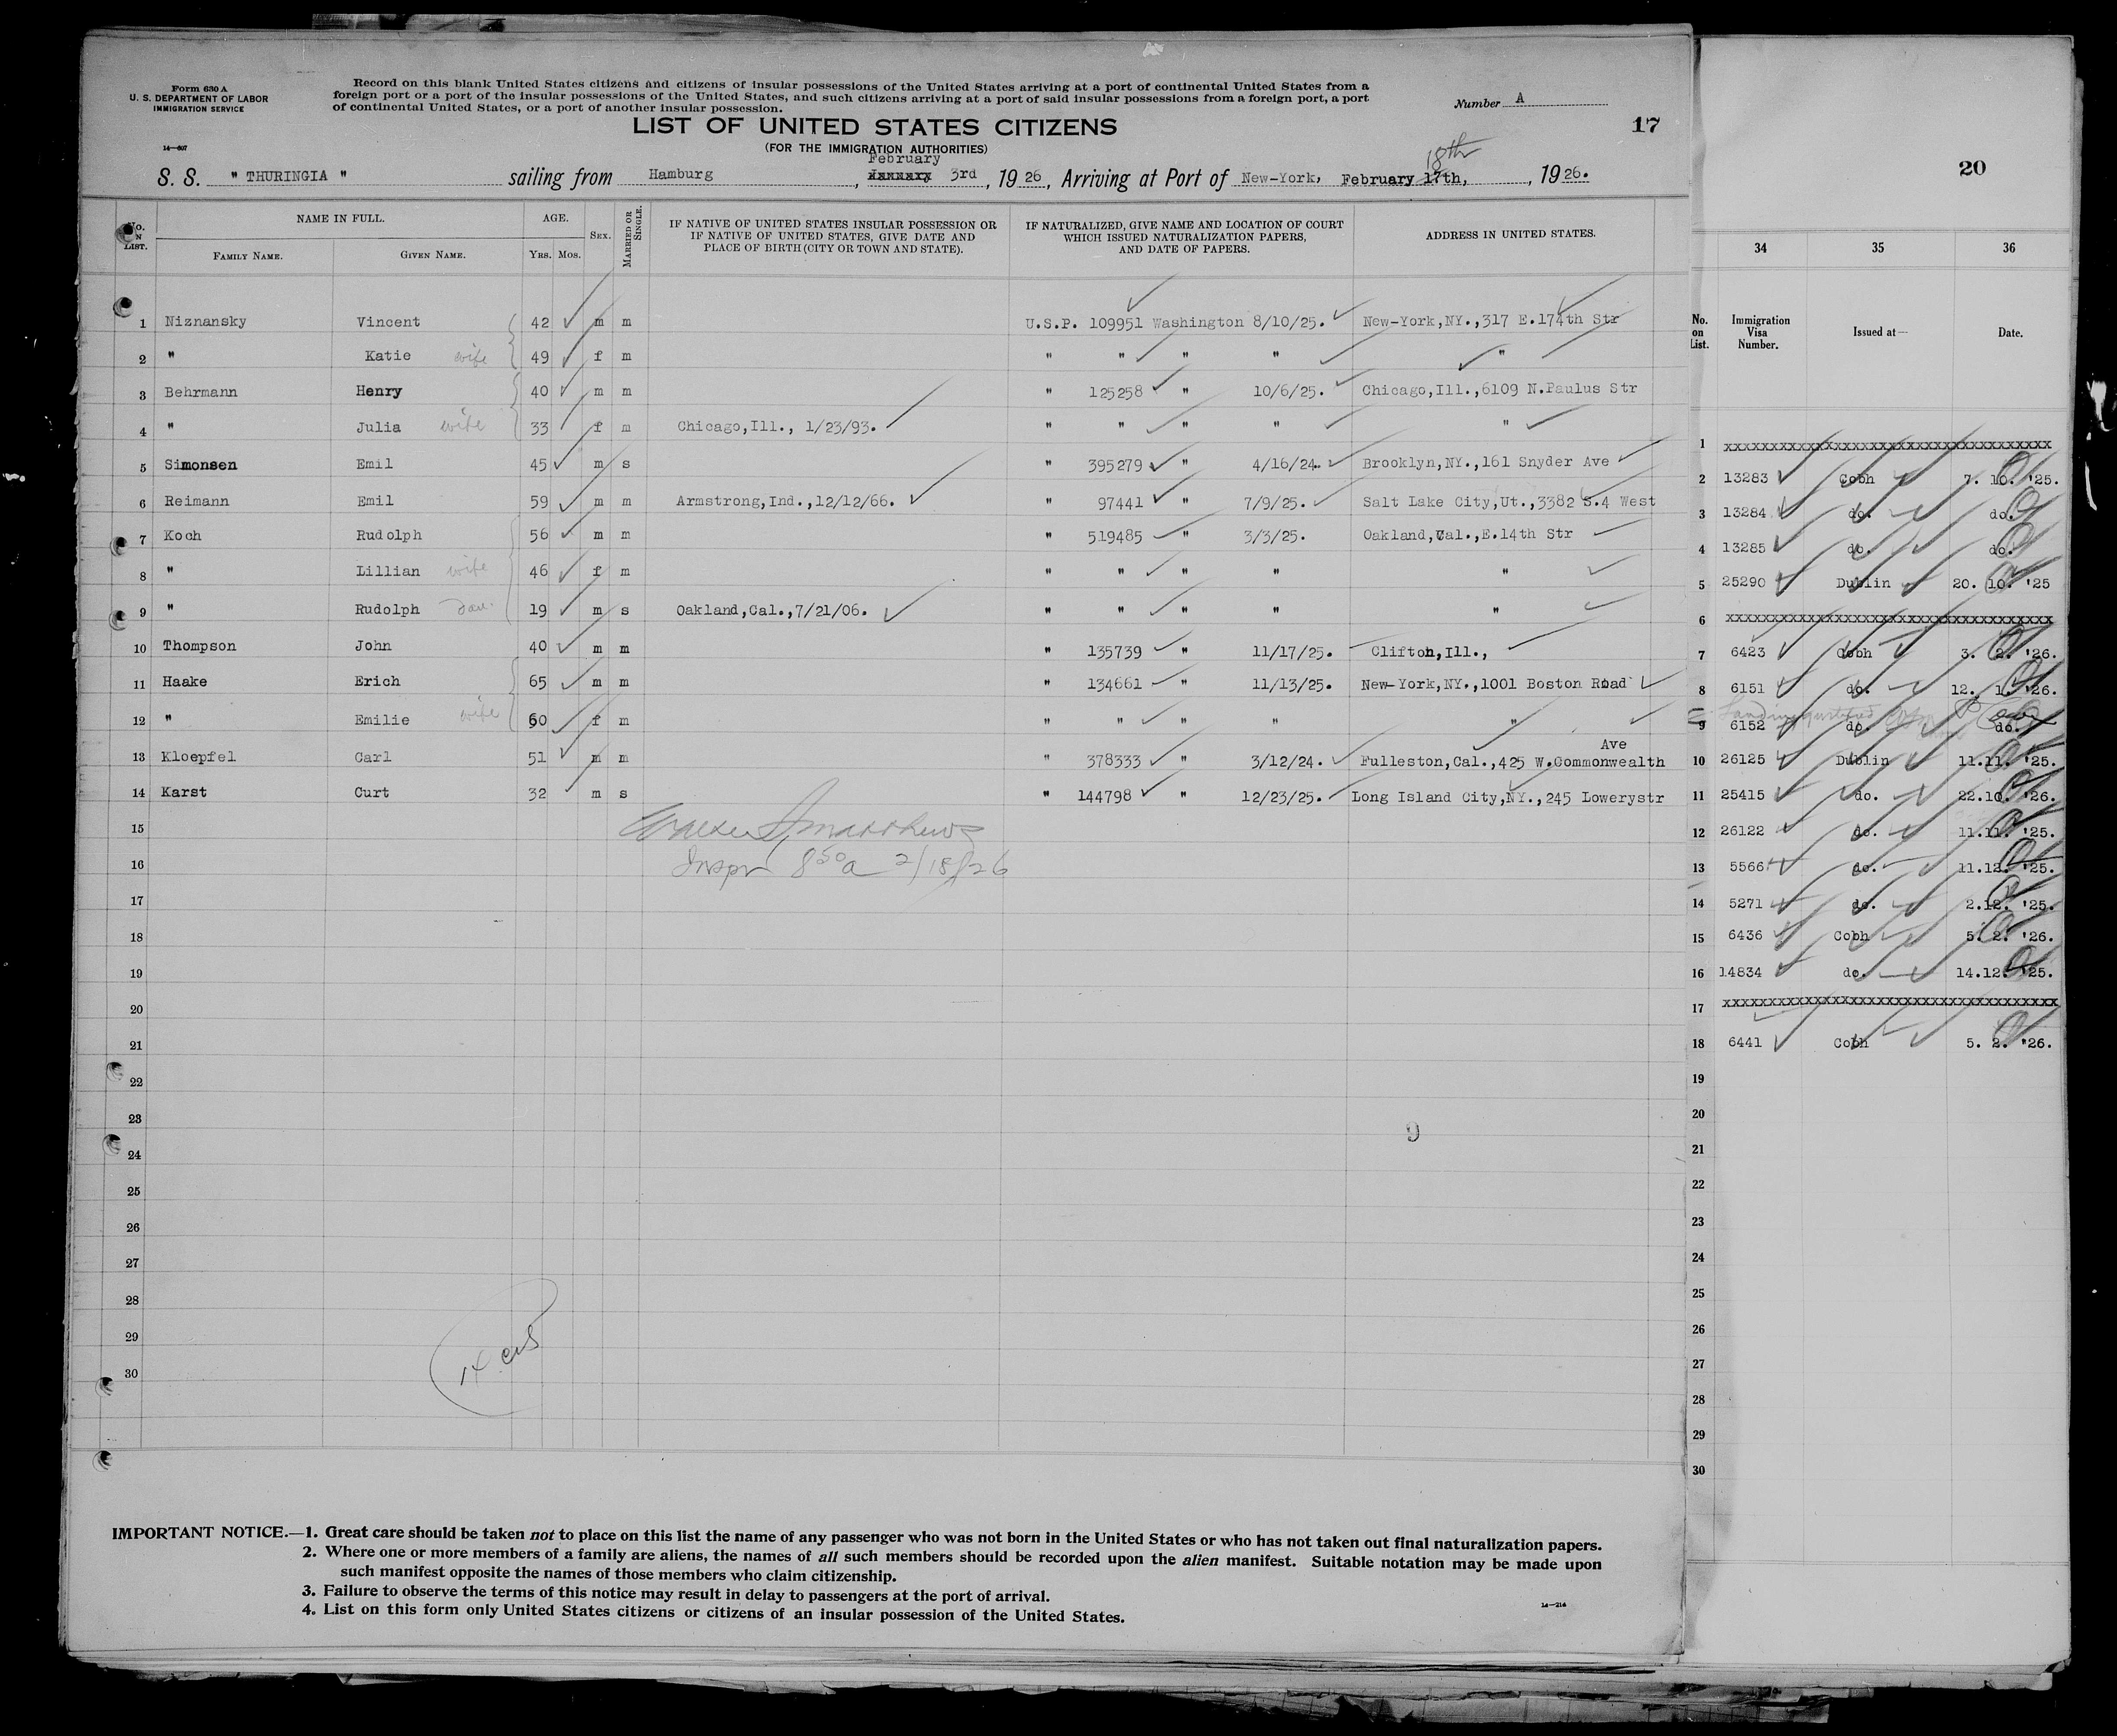 Form 630 A
U. S. DEPARTMENT OF LABOR
IMMIGRATION SERVICE
Record on this blank United States citizens and citizens of insular possessions of the United States arriving at a port of continental United States from a
foreign port or a port of the insular possessions of the United States, and such citizens arriving at a port of said insular possessions from a foreign port, a port
of continental United States, or a port of another insular possession.
Number A
17
LIST OF UNITED STATES CITIZENS
14—607
(FOR THE IMMIGRATION AUTHORITIES)
February 18th
S. S. " THURINGIA " sailing from Hamburg, January 3rd, 1926, Arriving at Port of New-York, February 17th, 1926.
No. on List. NAME IN FULL. AGE. Sex. Married or Single. IF NATIVE OF UNITED STATES INSULAR POSSESSION OR IF NATIVE OF UNITED STATES, GIVE DATE AND PLACE OF BIRTH (CITY OR TOWN AND STATE). IF NATURALIZED, GIVE NAME AND LOCATION OF COURT WHICH ISSUED NATURALIZATION PAPERS, AND DATE OF PAPERS. ADDRESS IN UNITED STATES.
Family Name. Given Name. Yrs. Mos.
1 Niznansky Vincent 42 m m U.S.P. 109951 Washington 8/10/25. New-York,NY.,317 E.174th Str
2 " Katie wife 49 f m " " " " "
3 Behrmann Henry 40 m m " 125258 " 10/6/25. Chicago,Ill.,6109 N.Paulus Str
4 " Julia wife 33 f m Chicago,Ill., 1/23/93. " " " " "
5 Simonsen Emil 45 m s " 395279 " 4/16/24. Brooklyn,NY.,161 Snyder Ave
6 Reimann Emil 59 m m Armstrong,Ind.,12/12/66. " 97441 " 7/9/25. Salt Lake City,Ut.,3382 S.4 West
7 Koch Rudolph 56 m m " 519485 " 3/3/25. Oakland,Cal.,E.14th Str
8 " Lillian wife 46 f m " " " " "
9 " Rudolph 19 m s Oakland,Cal.,7/21/06. " " " " "
10 Thompson John 40 m m " 135739 " 11/17/25. Clifton,Ill.,
11 Haake Erich 65 m m " 134661 " 11/13/25. New-York,NY.,1001 Boston Road
12 " Emilie wife 60 f m " " " " "
Ave
13 Kloepfel Carl 51 m m " 378333 " 3/12/24. Fulleston,Cal.,425 W.Commonwealth
14 Karst Curt 32 m s " 144798 " 12/23/25. Long Island City,NY.,245 Lowerystr
15 Matthews
16 Inspr 8 50 a 2/18/26
17
18
19
20
21
22
23
9
24
25
26
27
28
29
30
14
IMPORTANT NOTICE.—1. Great care should be taken not to place on this list the name of any passenger who was not born in the United States or who has not taken out final naturalization papers.
2. Where one or more members of a family are aliens, the names of all such members should be recorded upon the alien manifest. Suitable notation may be made upon
such manifest opposite the names of those members who claim citizenship.
3. Failure to observe the terms of this notice may result in delay to passengers at the port of arrival.
4. List on this form only United States citizens or citizens of an insular possession of the United States.
14—216
20
34 35 36
No. on List. Immigration Visa Number. Issued at— Date.
1 xxxxxxxxxxxxxxxxxxxxxxxxxxxxxxxxxxx
2 13283 Cobh 7. 10. '25.
3 13284 do. do.
4 13285 do. do.
5 25290 Dublin 20. 10. '25
6 xxxxxxxxxxxxxxxxxxxxxxxxxxxxxxxxxxx
7 6423 Cobh 3. 2. '26.
8 6151 do. 12. 1. '26.
9 6152 do. do.
10 26125 Dublin 11.11. '25.
11 25415 do. 22.10. '26.
12 26122 do. 11.11. '25.
13 5566 do. 11.12. '25.
14 5271 do. 2.12. '25.
15 6436 Cobh 5. 2. '26.
16 14834 do. 14.12. '25.
17 xxxxxxxxxxxxxxxxxxxxxxxxxxxxxxxxxxx
18 6441 Cobh 5. 2. '26.
19
20
21
22
23
24
25
26
27
28
29
30